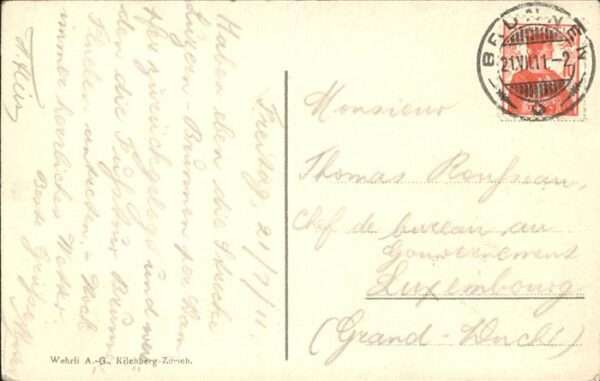 Freitag, 21/7/11.
Haben eben die Strecke
Luzern - Brunnen per Dam
pfer zurückgelegt und wer
den die Fußtour Brunn
Flüelen antreten. - Noch
immer herrliches Wetter.
Beste Grüße
BRUNNEN
21.VII.11.-2
Monsieur
Thomas Rousseau,
Chef de bureau au
Gouvernement
Luxembourg.
(Grand-Duché)
Wehrli A.-G., Kilchberg-Zürich.